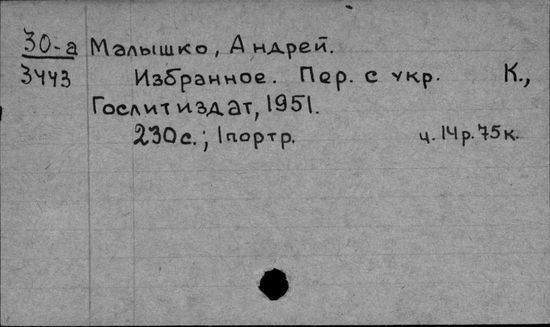 30-а Малышко, Андрей.
3443 Избранное. Пер. с укр. К.,
Гослитиздат, 1951.
230с.; 1портр. ц. 14р. 75к.